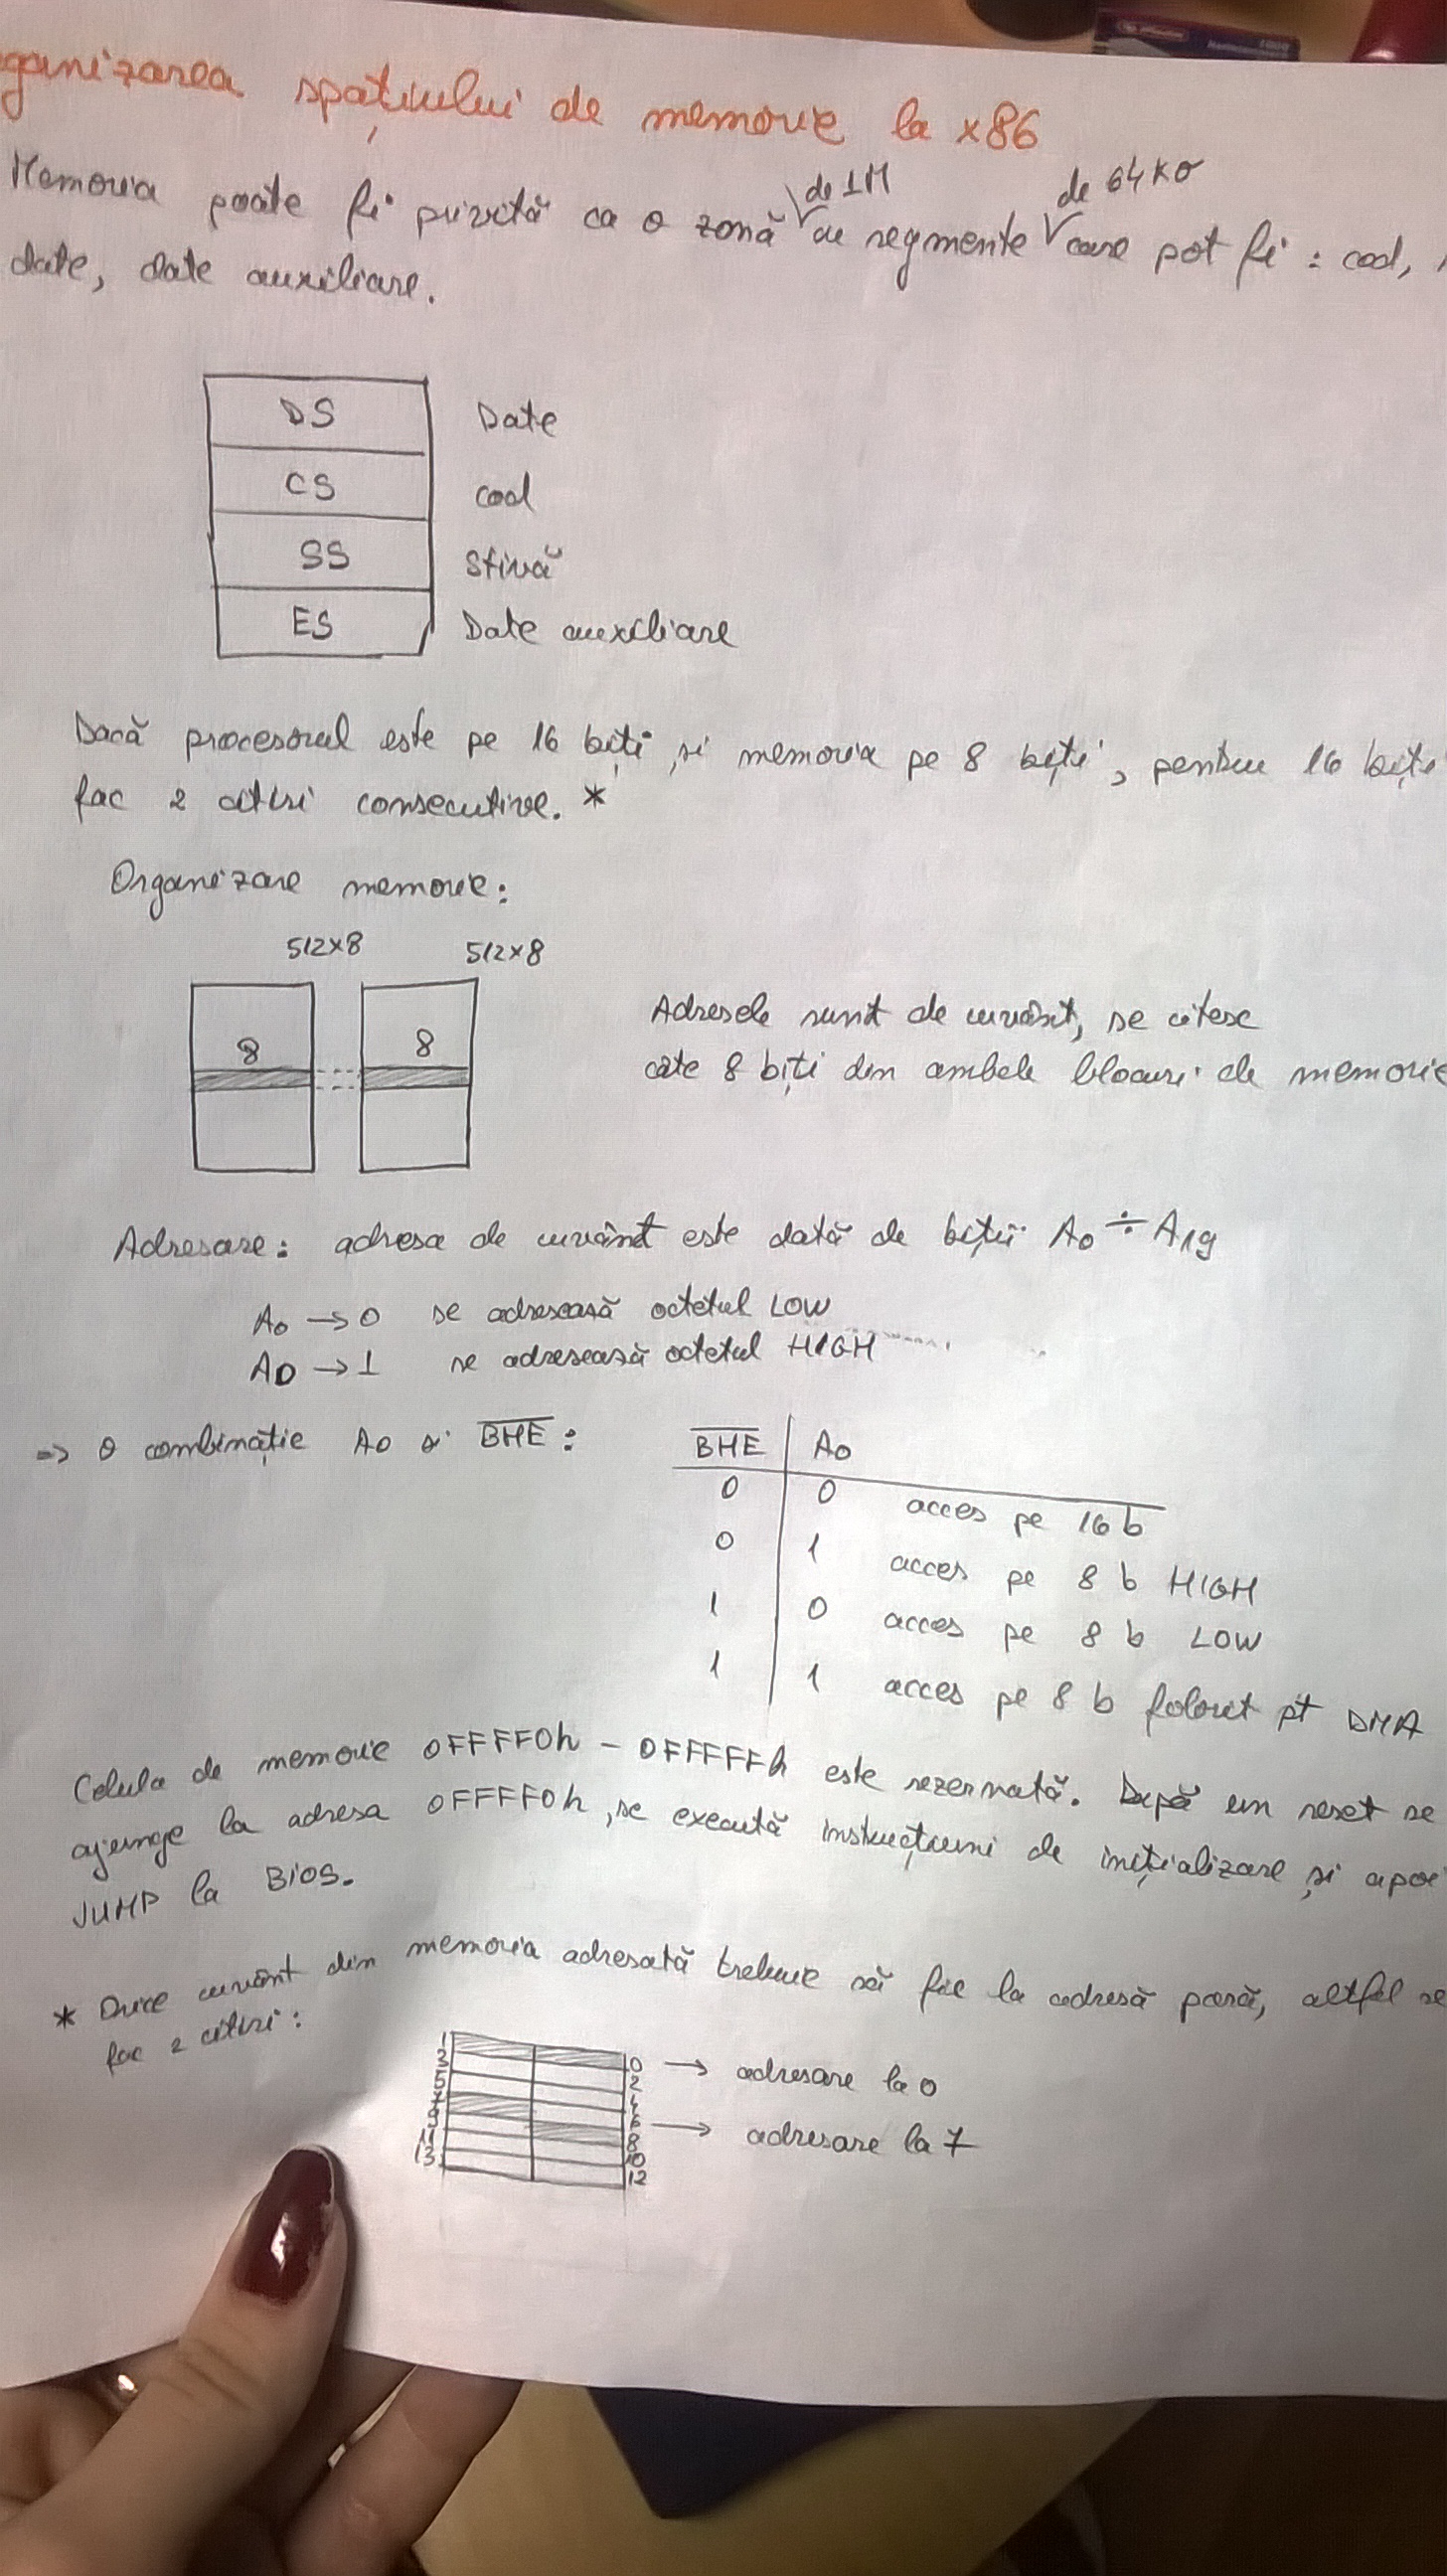 ganizarea spațiului de memorie la x86
de 1M de 64KO
Memoria poate fi privită ca o zonă cu segmente care pot fi : cod,
date, date auxiliare.
DS Date
CS cod
SS Stivă
ES Date auxiliare
Dacă procesorul este pe 16 biți și memoria pe 8 biți, pentru 16 biți
fac 2 citiri consecutive. *
Organizare memorie:
512x8 512x8
8 8
Adresele sunt de cuvânt, se citesc
cate 8 biți din ambele blocuri de memorie
Adresare: adresa de cuvânt este dată de biții A0 ÷ A19
A0 → 0 se adresează octetul LOW
A0 → 1 se adresează octetul HIGH
=> O combinație A0 și BHE :
BHE A0
0 0 acces pe 16 b
0 1 acces pe 8 b HIGH
1 0 acces pe 8 b LOW
1 1 acces pe 8 b folosit pt DMA
Celula de memorie 0FFFF0h - 0FFFFFh este rezervată. După un reset se
ajunge la adresa 0FFFF0h, se execută instrucțiuni de inițializare și apoi
JUMP la BIOS.
* Orice cuvânt din memoria adresată trebuie să fie la adresă pară, altfel se
fac 2 citiri :
1
3
5
7
9
11
13
0 → adresare la 0
2
4
6 → adresare la 7
8
10
12